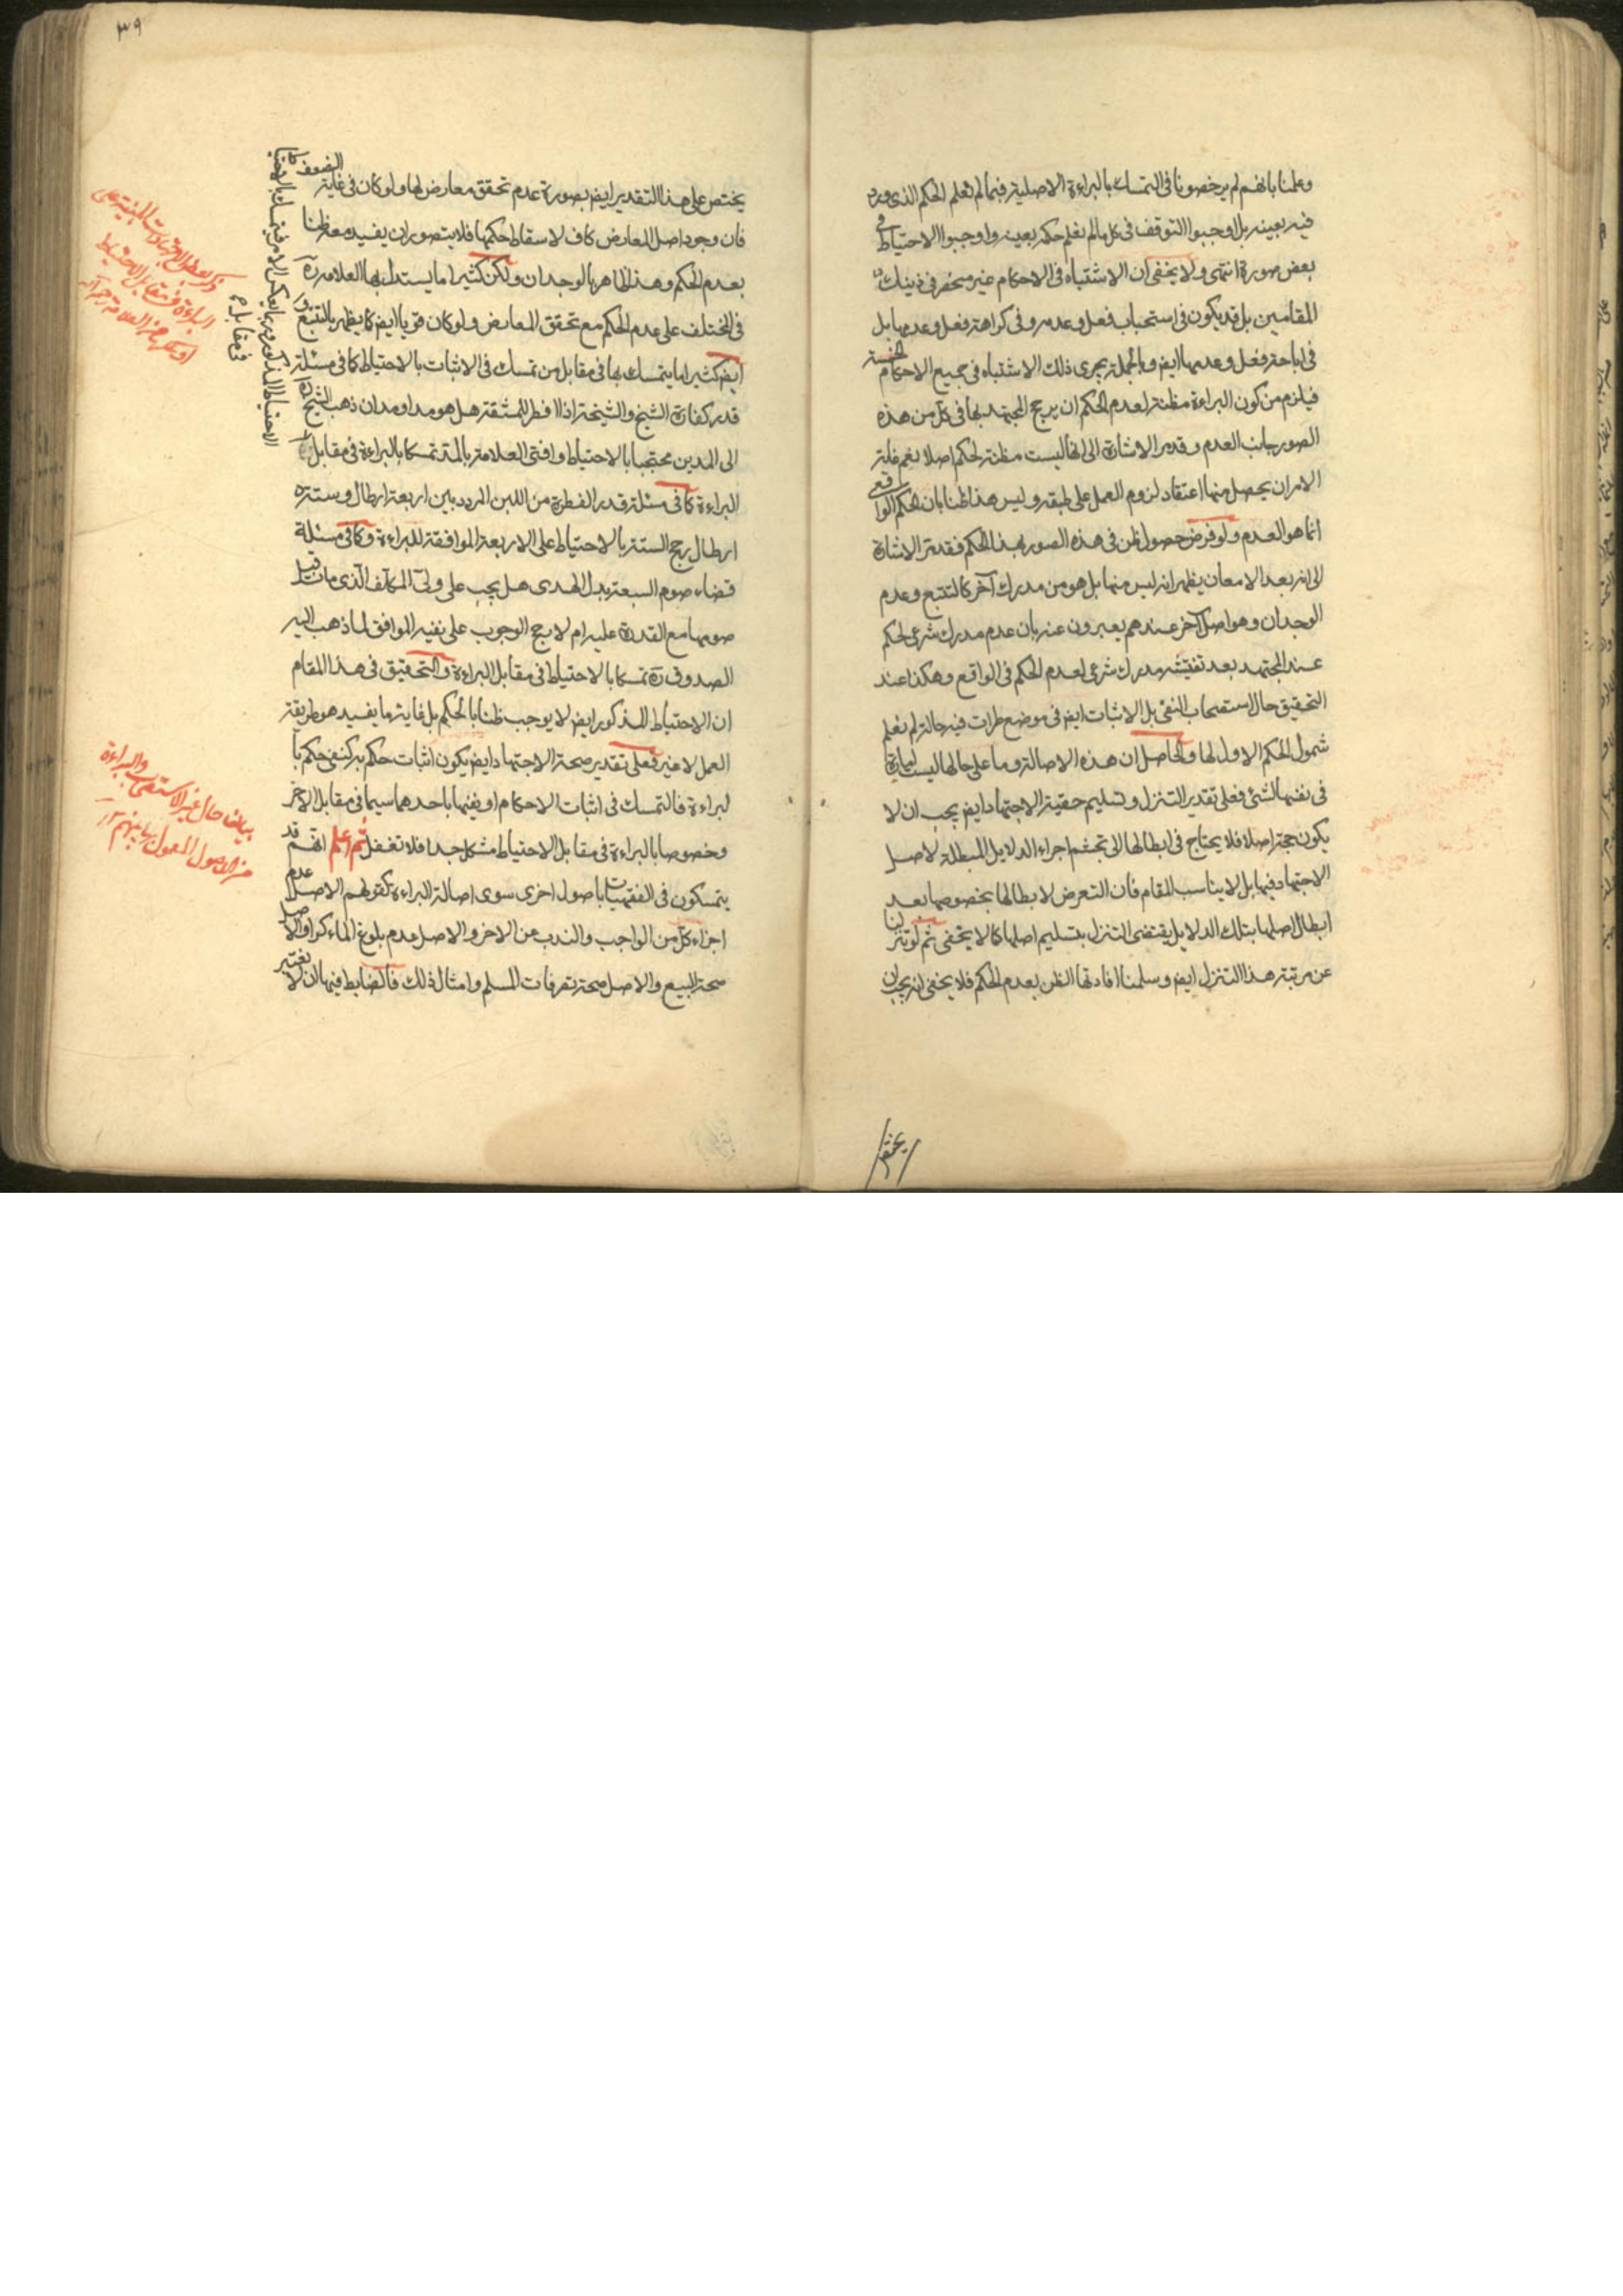 وعلمنا بانهم لم يرخصونا فى التمسك بالبراءة الاصلية فيما لم نعلم الحكم الذى ورد
فيه بعينه بل اوجبوا التوقف فى كل ما لم نعلم حكمه بعينه واوجبوا الاحتياط فى
بعض صورة انتهى ولا يخفى ان الاشتباه فى الاحكام غير منحصر فى ذينك
المقامين بل قد يكون فى استحباب فعل وعدمه وفى كراهة فعل وعدمها بل
فى اباحة فعل وعدمها ايض وبالجملة يجرى ذلك الاشتباه فى جميع الاحكام الخمسة
فيلزم من كون البراءة مظنة لعدم الحكم ان يرجح المجتهد بها فى كل من هذه
الصور جانب العدم وقد مر الاشارة الى انها ليست مظنة لحكم اصلا نعم غاية
الامر ان يحصل منها اعتقاد لزوم العمل على طبقه وليس هذا ظنا بان الحكم الواقعى
انما هو العدم ولو فرض حصول ظن فى هذه الصور بهذا الحكم فقد مر الاشارة
الى انه بعد الامعان يظهر انه ليس منها بل هو من مدرك آخر كالتتبع وعدم
الوجدان وهو اصل آخر عندهم يعبرون عنه بان عدم مدرك شرعى لحكم
عند المجتهد بعد تفتيشه مدرك شرعى لعدم الحكم فى الواقع وهكذا عند
التحقيق حال استصحاب النفى بل الاثبات ايض فى موضع طرات فيه حالة لم نعلم
شمول الحكم الاول لها والحاصل ان هذه الاصالة وما على حالها ليست امارة
فى نفسها لشئ فعلى تقدير التنزل وتسليم حقية الاجتهاد ايض يجب ان لا
يكون حجة اصلا فلا يحتاج فى ابطالها الى تجشم اجراء الدلايل المبطلة لاصل
الاجتهاد فيها بل لا يناسب المقام فان التعرض لابطالها بخصوصها بعد
ابطال اصلها بتلك الدلايل يقتضى التنزل بتسليم اصلها كما لا يخفى ثم لو تنزلنا
عن مرتبة هذا التنزل ايض وسلمنا افادتها الظن بعدم الحكم فلا يخفى انه يجب ان
يختص
٣٩
يختص على هذا التقدير ايض بصورة عدم تحقق معارض لها ولو كان فى غاية الضعف
فان وجود اصل المعارض كاف لاسقاط حكمها فلا يتصور ان يفيد معه ظنا
بعدم الحكم وهذا ظاهر بالوجدان ولكن كثيرا ما يستدل بها العلامة ره
فى المختلف على عدم الحكم مع تحقق المعارض ولو كان قويا ايض كما يظهر بالتتبع و
ايض كثيرا ما يتمسك بها فى مقابل من تمسك فى الاثبات بالاحتياط كما فى مسئلة
قدر كفارة الشيخ والشيخة اذا افطر للمشقة هل هو مد او مدان ذهب الشيخ ره
الى المدين محتجا بالاحتياط وافتى العلامة بالمد تمسكا بالبراءة فى مقابل
البراءة كما فى مسئلة قدر الفطرة من اللبن المردد بين اربعة ارطال وستة
ارطال رجح الستة بالاحتياط على الاربعة الموافقة للبراءة وكما فى مسئلة
قضاء صوم السبعة بدل الهدى هل يجب على ولى المكلف الذى مات قبل
صومها مع القدرة عليه ام لا رجح الوجوب على نفيه الموافق لما ذهب اليه
الصدوق ره تمسكا بالاحتياط فى مقابل البراءة والتحقيق فى هذا المقام
ان الاحتياط المذكور ايض لا يوجب ظنا بالحكم بل غاية ما يفيد هو طريقة
العمل لا غير فعلى تقدير صحة الاجتهاد ايض يكون اثبات حكم به كنفى حكم با
لبراءة فالتمسك فى اثبات الاحكام او نفيها باحدهما سيما فى مقابل الاخر
وخصوصا بالبراءة فى مقابل الاحتياط مشكل جدا فلا تغفل ثم اعلم انهم قد
يتمسكون فى الفقهيات باصول اخرى سوى اصالة البراءة كقولهم الاصل عدم
اجزاء كل من الواجب والندب عن الاخر والاصل عدم بلوغ الماء كرا والاصل
صحة البيع والاصل صحة تصرفات المسلم وامثال ذلك فالضابط فيها ان لا نعتبر
الاحتياط المذكور وربما يعكس الامر فيتمسك بالاحتياط
فى مقابل
ذكر بعض الاجتهادات المبنية على
البراءة فى مقابل الاحتياط
بيان حال غير الاستصحاب والبراءة
من الاصول المعول بها بينهم